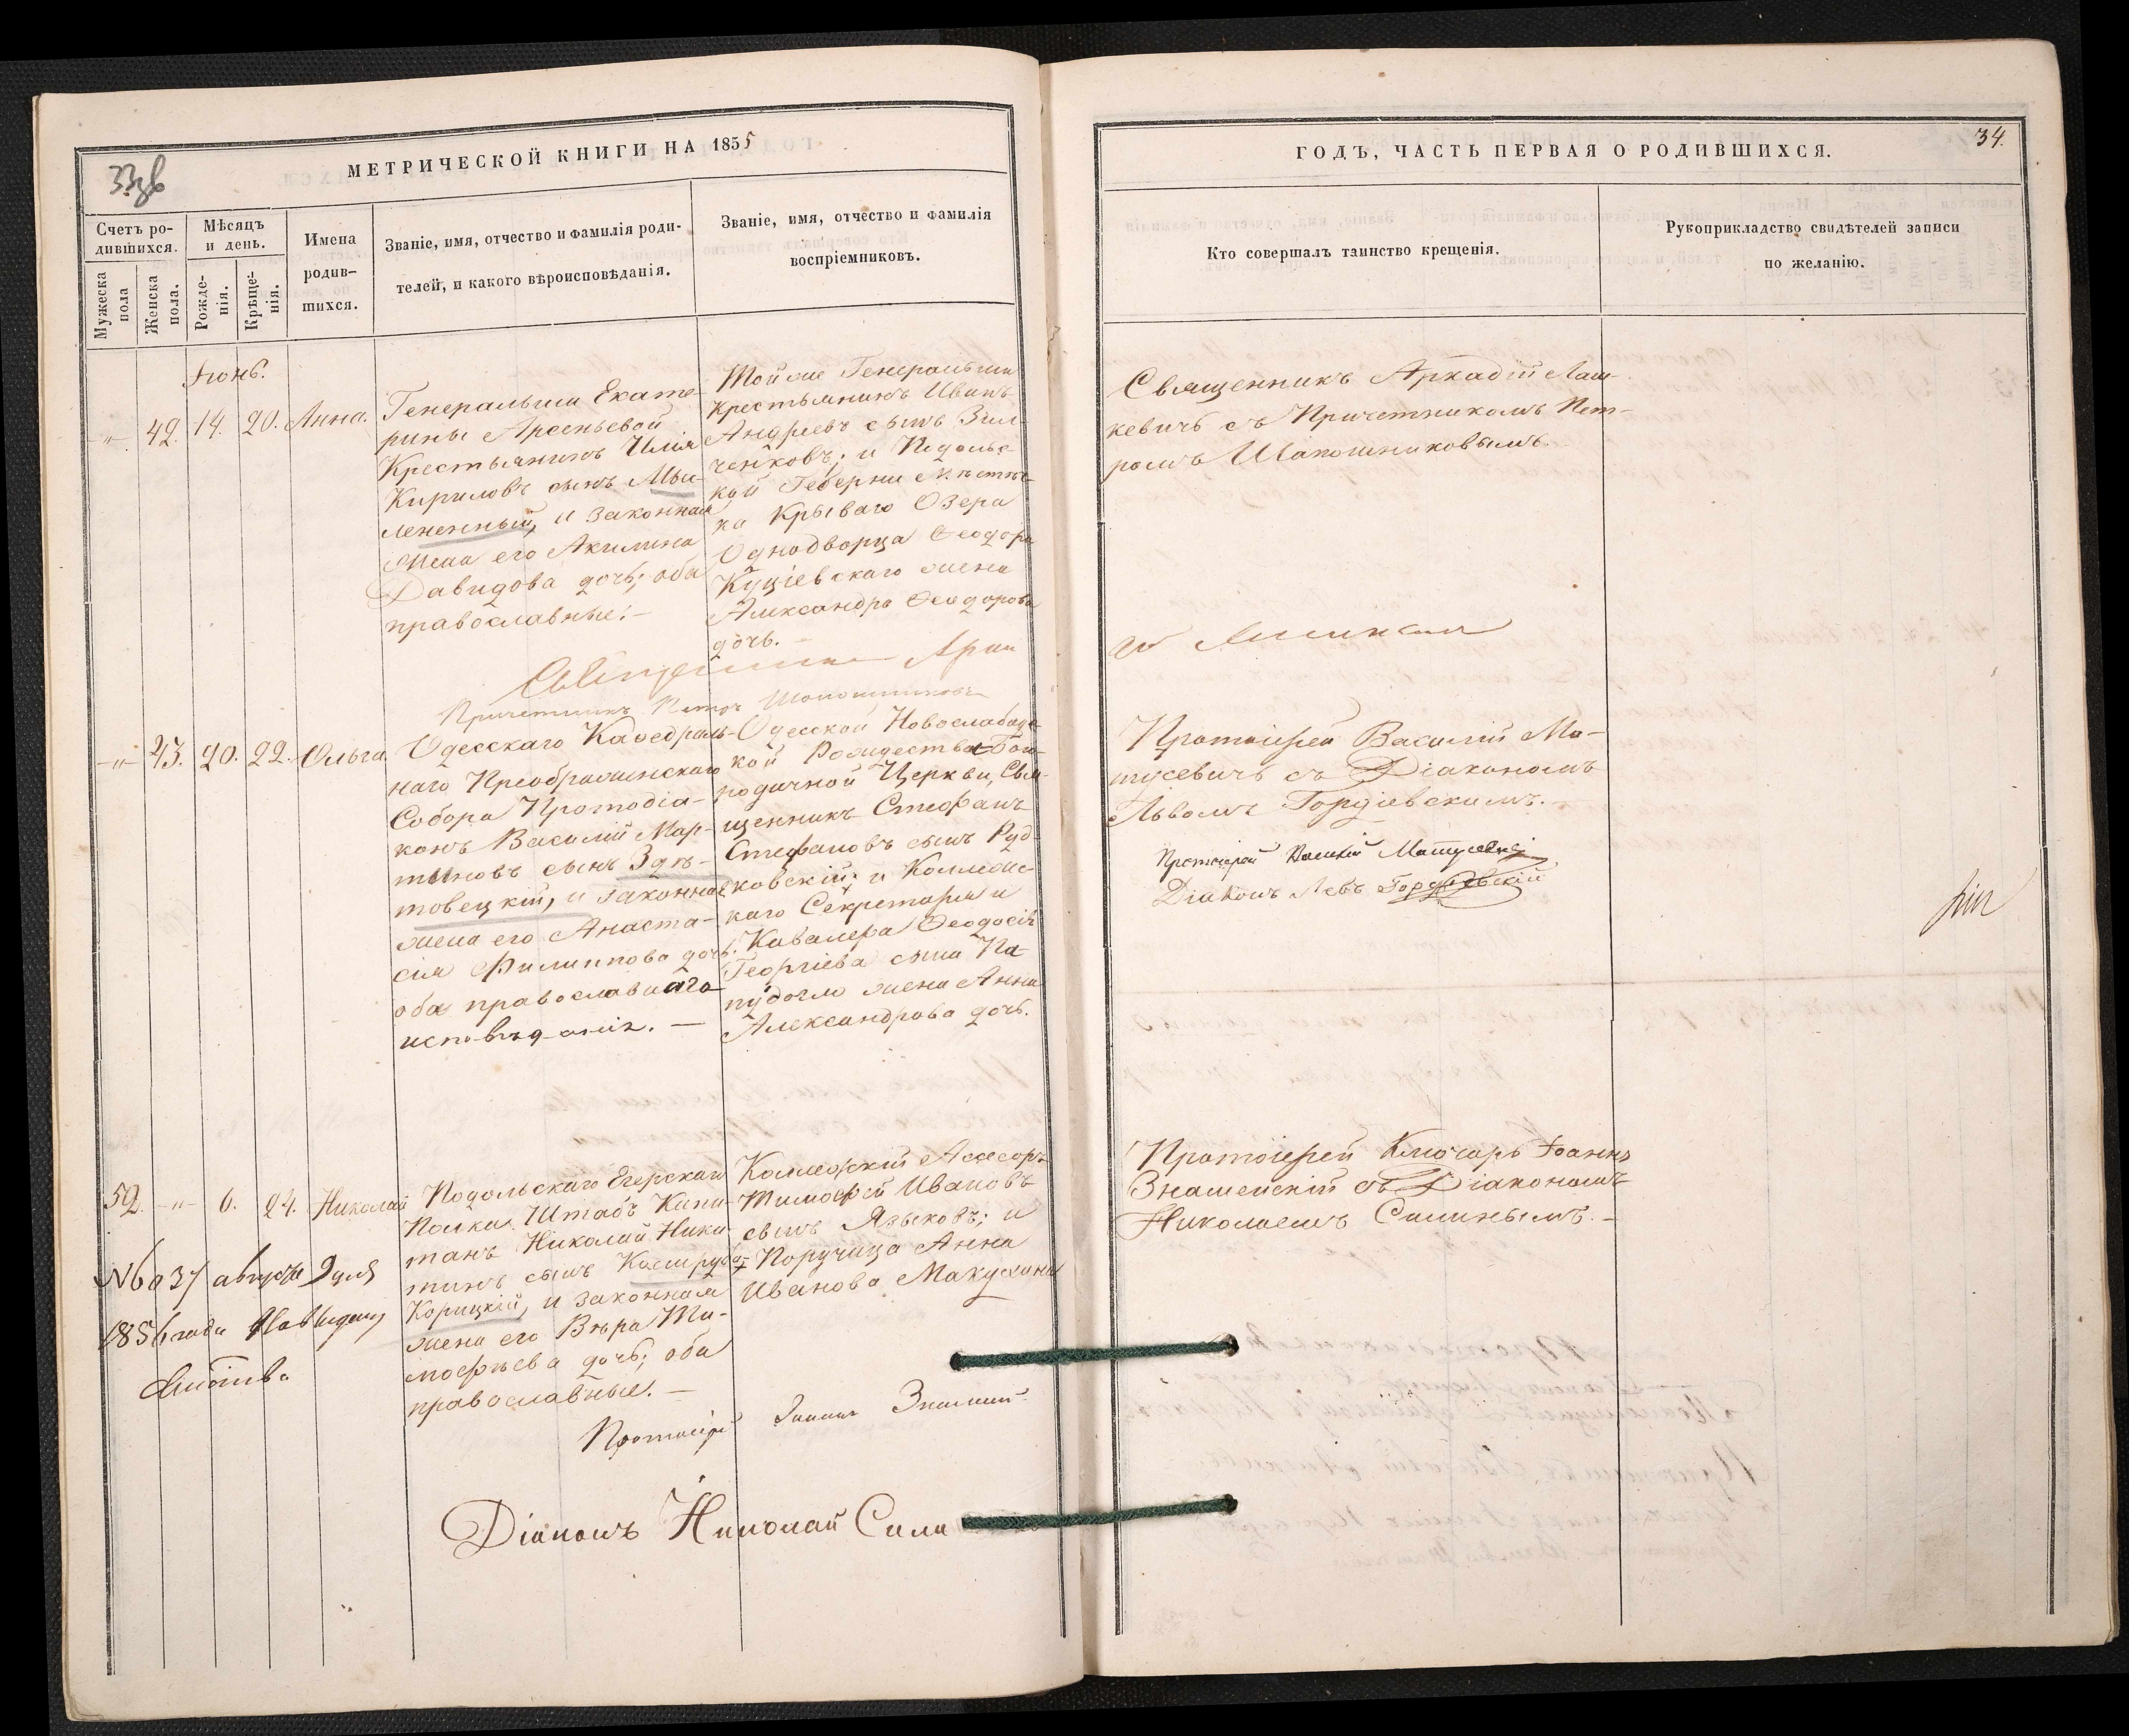 33зв
МЕТРИЧЕСКОЙ КНИГИ НА 1855
Счетъ ро-
дившихся.
Мужеска
пола
Женска
пола.
Мѣсяцъ
и день.
Рожде-
нія.
Крѣще-
нія.
Имена
родив-
шихся.
Званіе, имя, отчество и фамилія роди-
телей, и какого вѣроисповѣданія.
Званіе, имя, отчество и фамилія
воспріемниковъ.
Іюнь.
-"- 42. 14. 20. Анна.
Генеральши Екате-
рины Арсеньевой
Крестьянинъ Илія
Кириловъ сынъ Мы-
лененный, и законная
жена его Акилина
Давидова дочь; оба
православные.-
Той же Генеральши
Крестьянинъ Иванъ
Андреевъ сынъ Зин-
ченковъ; и Подольс-
кой Губерни Мѣстеч-
ка Крываго Озера
Однодворца Ѳеодора
Куціевскаго жена
Александра Ѳеодорова
дочь.-
Причетникъ Петръ Шапошниковъ
-"- 43. 20. 22. Ольга
Одесскаго Каѳедраль-
наго Преображенскаго
Собора Протодіа-
конъ Василій Мар-
тиновъ сынъ Здѣ-
товецкій, и законная
жена его Анаста-
сія Филиппова дочь:
оба православнаго
исповѣданія. —
Одесской Новослабодс-
кой Рождества-Бого-
родичной Церкви, Свя-
щенникъ Стефанъ
Стефановъ сынъ Руд-
ковскій; и Коллежс-
каго Секретаря и
Кавалера Ѳеодосія
Георгіева сына Па-
пудогло жена Анна
Александрова дочь.
52. -"- 6. 24. Николай
Подольскаго Егерскаго
Полка Штабъ Капи-
танъ Николай Ники-
тинъ сынъ Кострубо-
Корицкій, и законная
жена его Вѣра Ти-
моѳѣева дочь; оба
православные.-
Коллежскій Ассесоръ
Тимоѳей Ивановъ
сынъ Языковъ; и
Поручица Анна
Иванова Макухина
№6037 августа 9 дня
1856 года
Протоіерей Іоаннъ
Діаконъ Николай Сили
34.
ГОДЪ, ЧАСТЬ ПЕРВАЯ О РОДИВШИХСЯ.
Кто совершалъ таинство крещенія.
Рукоприкладство свидѣтелей записи
по желанію.
Священникъ Аркадій Лаш-
кевичъ съ Причетникомъ Пет-
ромъ Шапошниковымъ.
Протоіерей Василій Ма-
тусевичъ съ Діакономъ
Львомъ Гордіевскимъ.
Протоіерей Василій Матусевич
Діаконъ Левъ Гордіевскій
Протоіерей Ключарь Іоаннъ
Знаменскій съ Діакономъ
Николаемъ Силинымъ.-